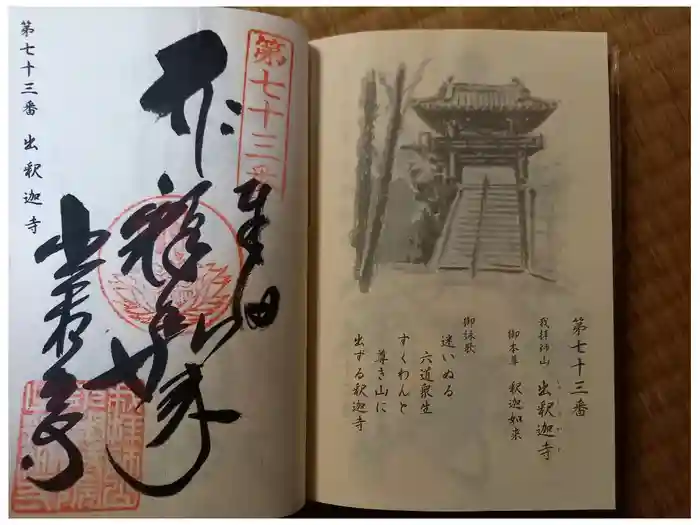 第七十三番
我拝師山 出釈迦寺
しゅつ しゃ か じ
御本尊 釈迦如来
御詠歌
迷いぬる
六道衆生
すくわんと
尊き山に
出ずる釈迦寺
第七十三番
奉納
釈迦如来
出釈迦寺
第七十三番 出釈迦寺